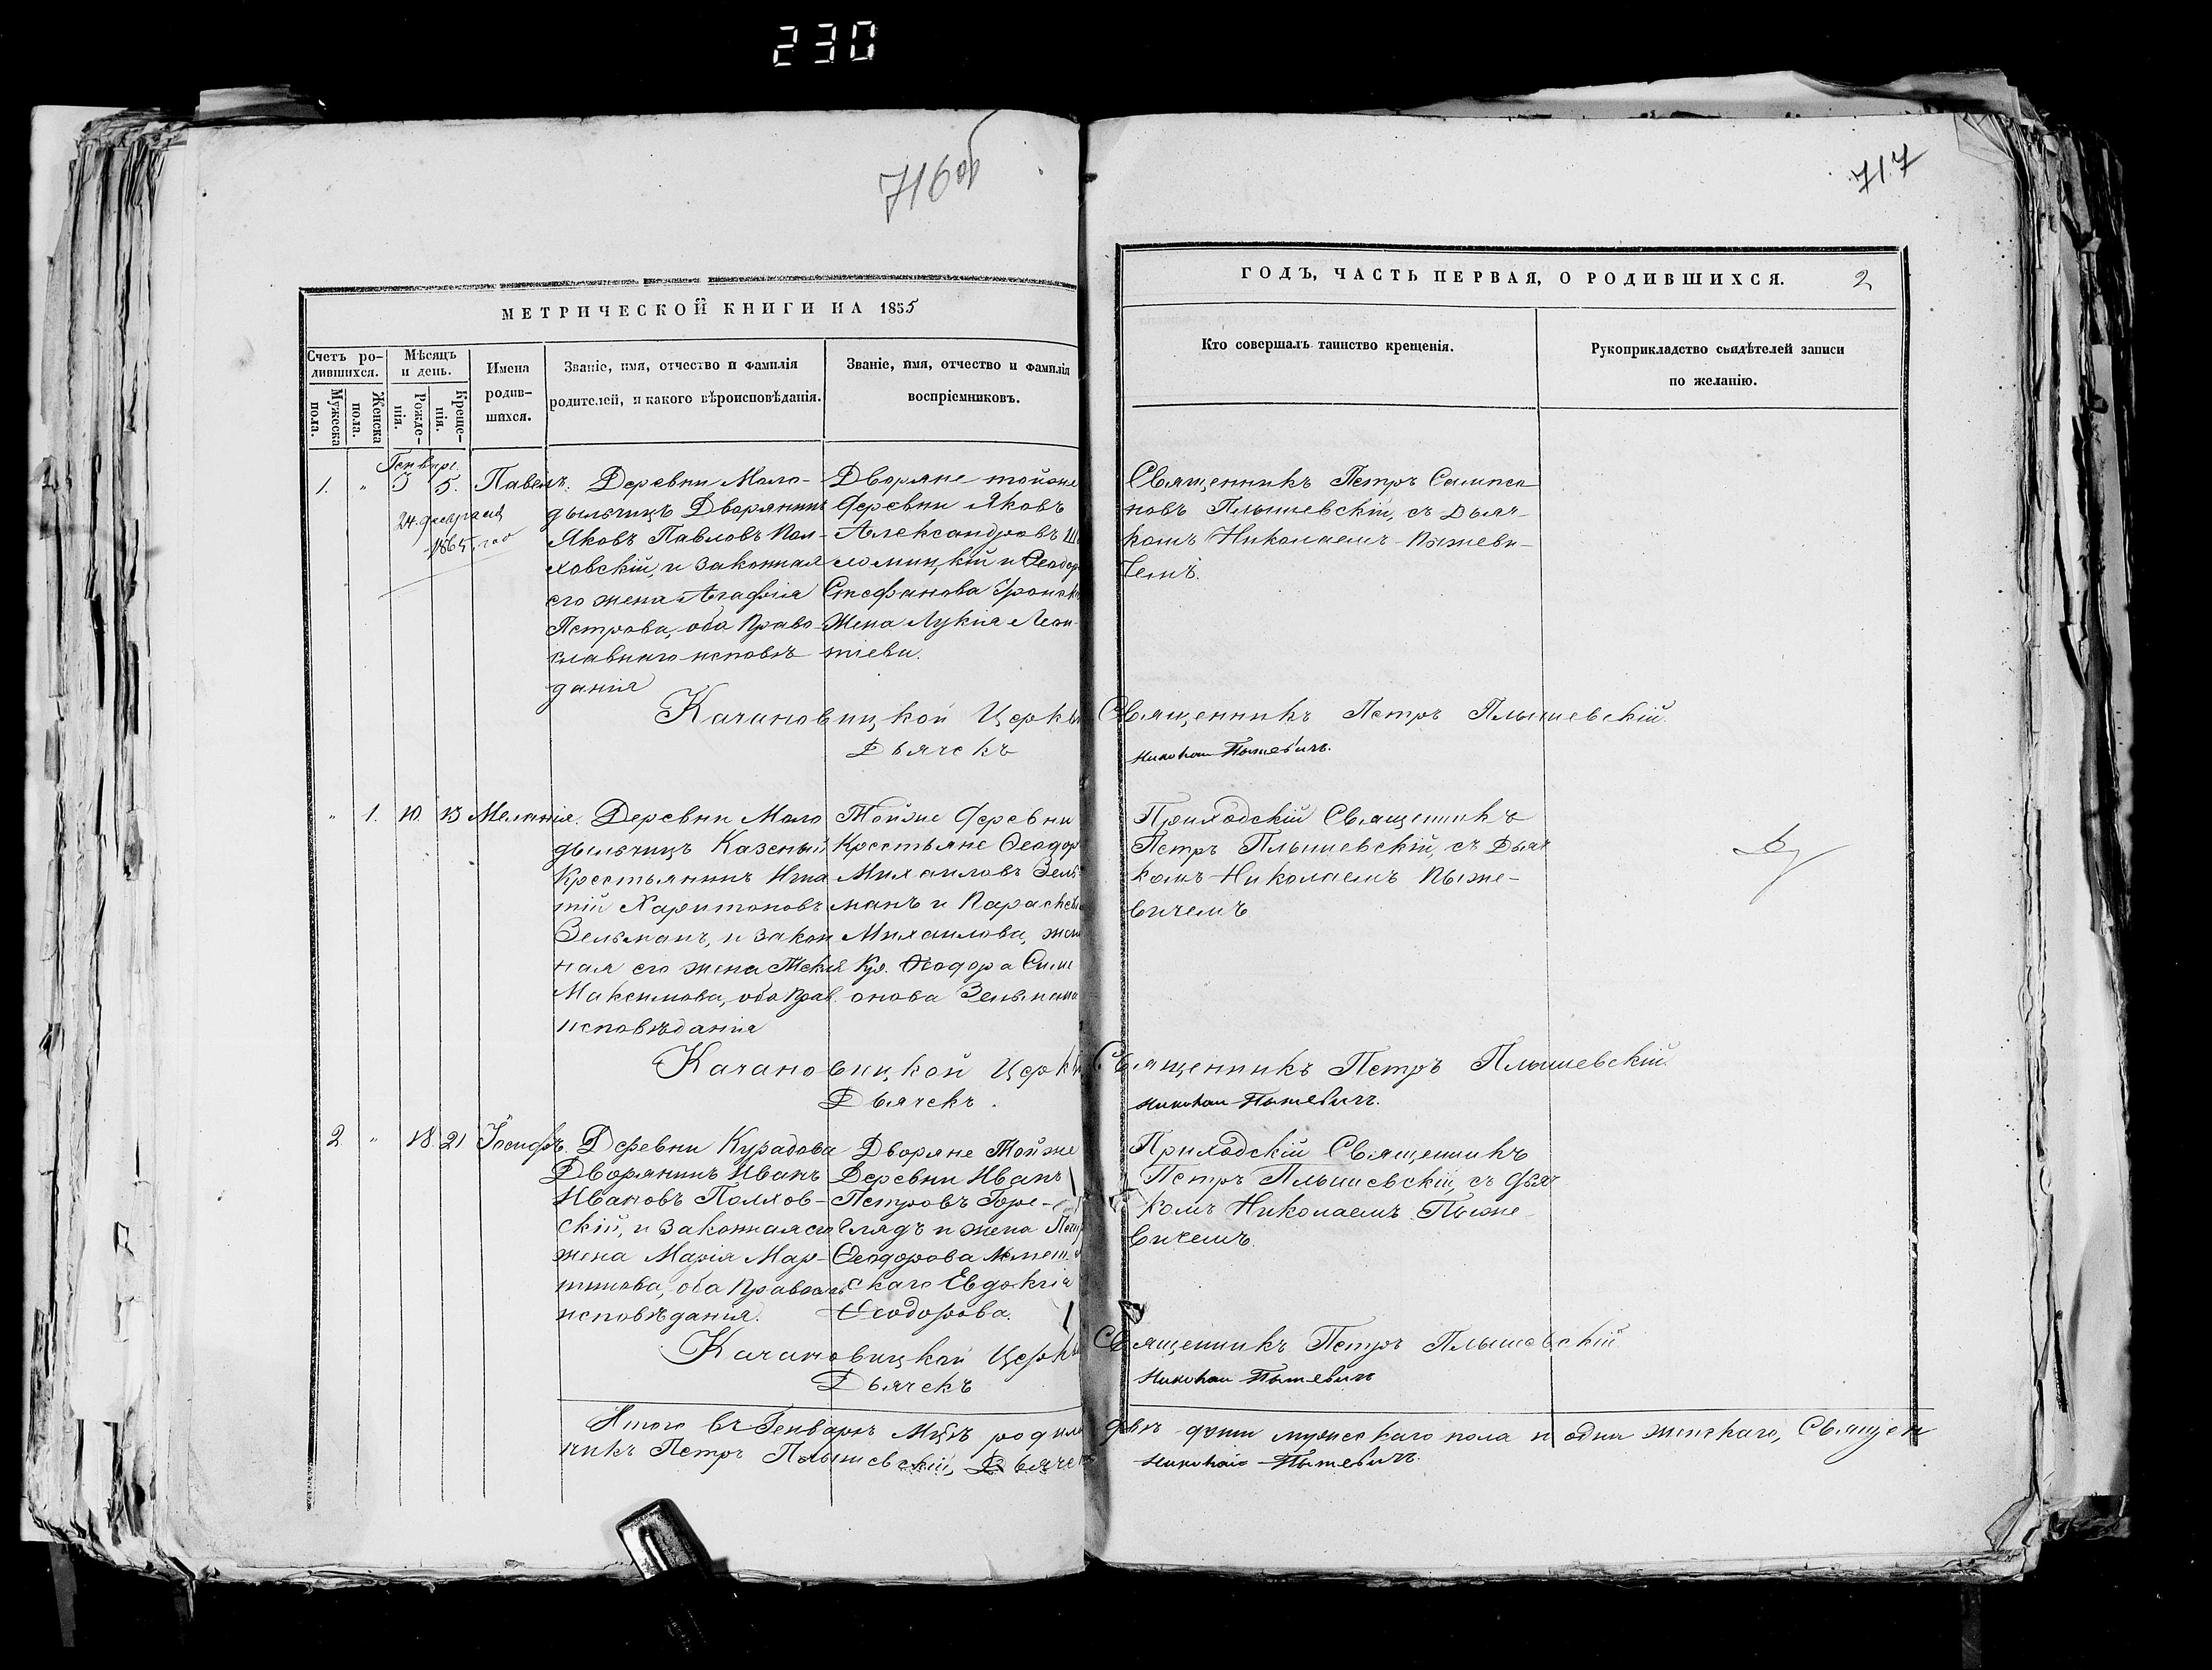 230
716 об
717
МЕТРИЧЕСКОЙ КНИГИ НА 1855
ГОДЪ, ЧАСТЬ ПЕРВАЯ, О РОДИВШИХСЯ.
2
Счетъ ро-
дившихся.
Мужеска
пола.
Женска
пола.
Мѣсяцъ
и день.
Рожде-
нія.
Креще-
нія.
Имена
родив-
шихся.
Званіе, имя, отчество и фамилія
родителей, и какого вѣроисповѣданія.
Званіе, имя, отчество и фамилія
воспріемниковъ.
Кто совершалъ таинство крещенія.
Рукоприкладство свидѣтелей записи
по желанію.
Генварь
1. " 3 5. Павелъ.
24 февраля
1865 год
Деревни Моло-
дыльчицъ Дворянинъ
Яковъ Павловъ Пол-
ховскій, и законная
его жена Агафія
Петрова, оба Право-
славнаго исповѣ
данія
Дворяне тойже
деревни Яковъ
Александровъ
и Феодор
Стефанова
жена Лукія Леон-
тіева.
Священникъ Петръ Сампсо
новъ Плышевскій, съ Дьяч-
комъ Николаемъ Пыжеви-
чемъ.
Качановицкой Церкви Священникъ Петръ Плышевскій.
Дьячекъ Николай Пыжевичъ.
" 1. 10. 13 Меланія.
Деревни Моло
дыльчицъ Казеный
Крестьянинъ Игна
тій Харитоновъ
Зельманъ, и закон
ная его жена Текля
Максимова, оба Прав.
исповѣданія
Тойже деревни
Крестьяне Феодор
Михаиловъ Зель
манъ и Параскева
Михаилова, жена
Кр. Феодора Сим
онова Зельмана
Приходскій Священникъ
Петръ Плышевскій, съ Дьяч
комъ Николаемъ Пыже-
вичемъ
Качановицкой Церкви Священникъ Петръ Плышевскій.
Дьячекъ. Николай Пыжевичъ.
2 " 18 21 Іосифъ.
Деревни Курадова
Дворянинъ Иванъ
Ивановъ Полхов-
скій, и законная его
жена Марія Мар-
тинова, оба Правосл
исповѣданія.
Дворяне Тойже
Деревни Иванъ
Петровъ Горе-
глядъ и жена Петр
Феодорова
скаго Евдокія
Феодорова.
Приходскій Священникъ
Петръ Плышевскій, съ дьяч
комъ Николаемъ Пыже
вичемъ.
Качановицкой Церкви Священникъ Петръ Плышевскій
Дьячекъ Николай Пыжевичъ
Итого въ Генварѣ Мцѣ родил двѣ души мужескаго пола и одна женскаго, Священ
никъ Петръ Плышевскій, Дьячекъ Николай Пыжевичъ.